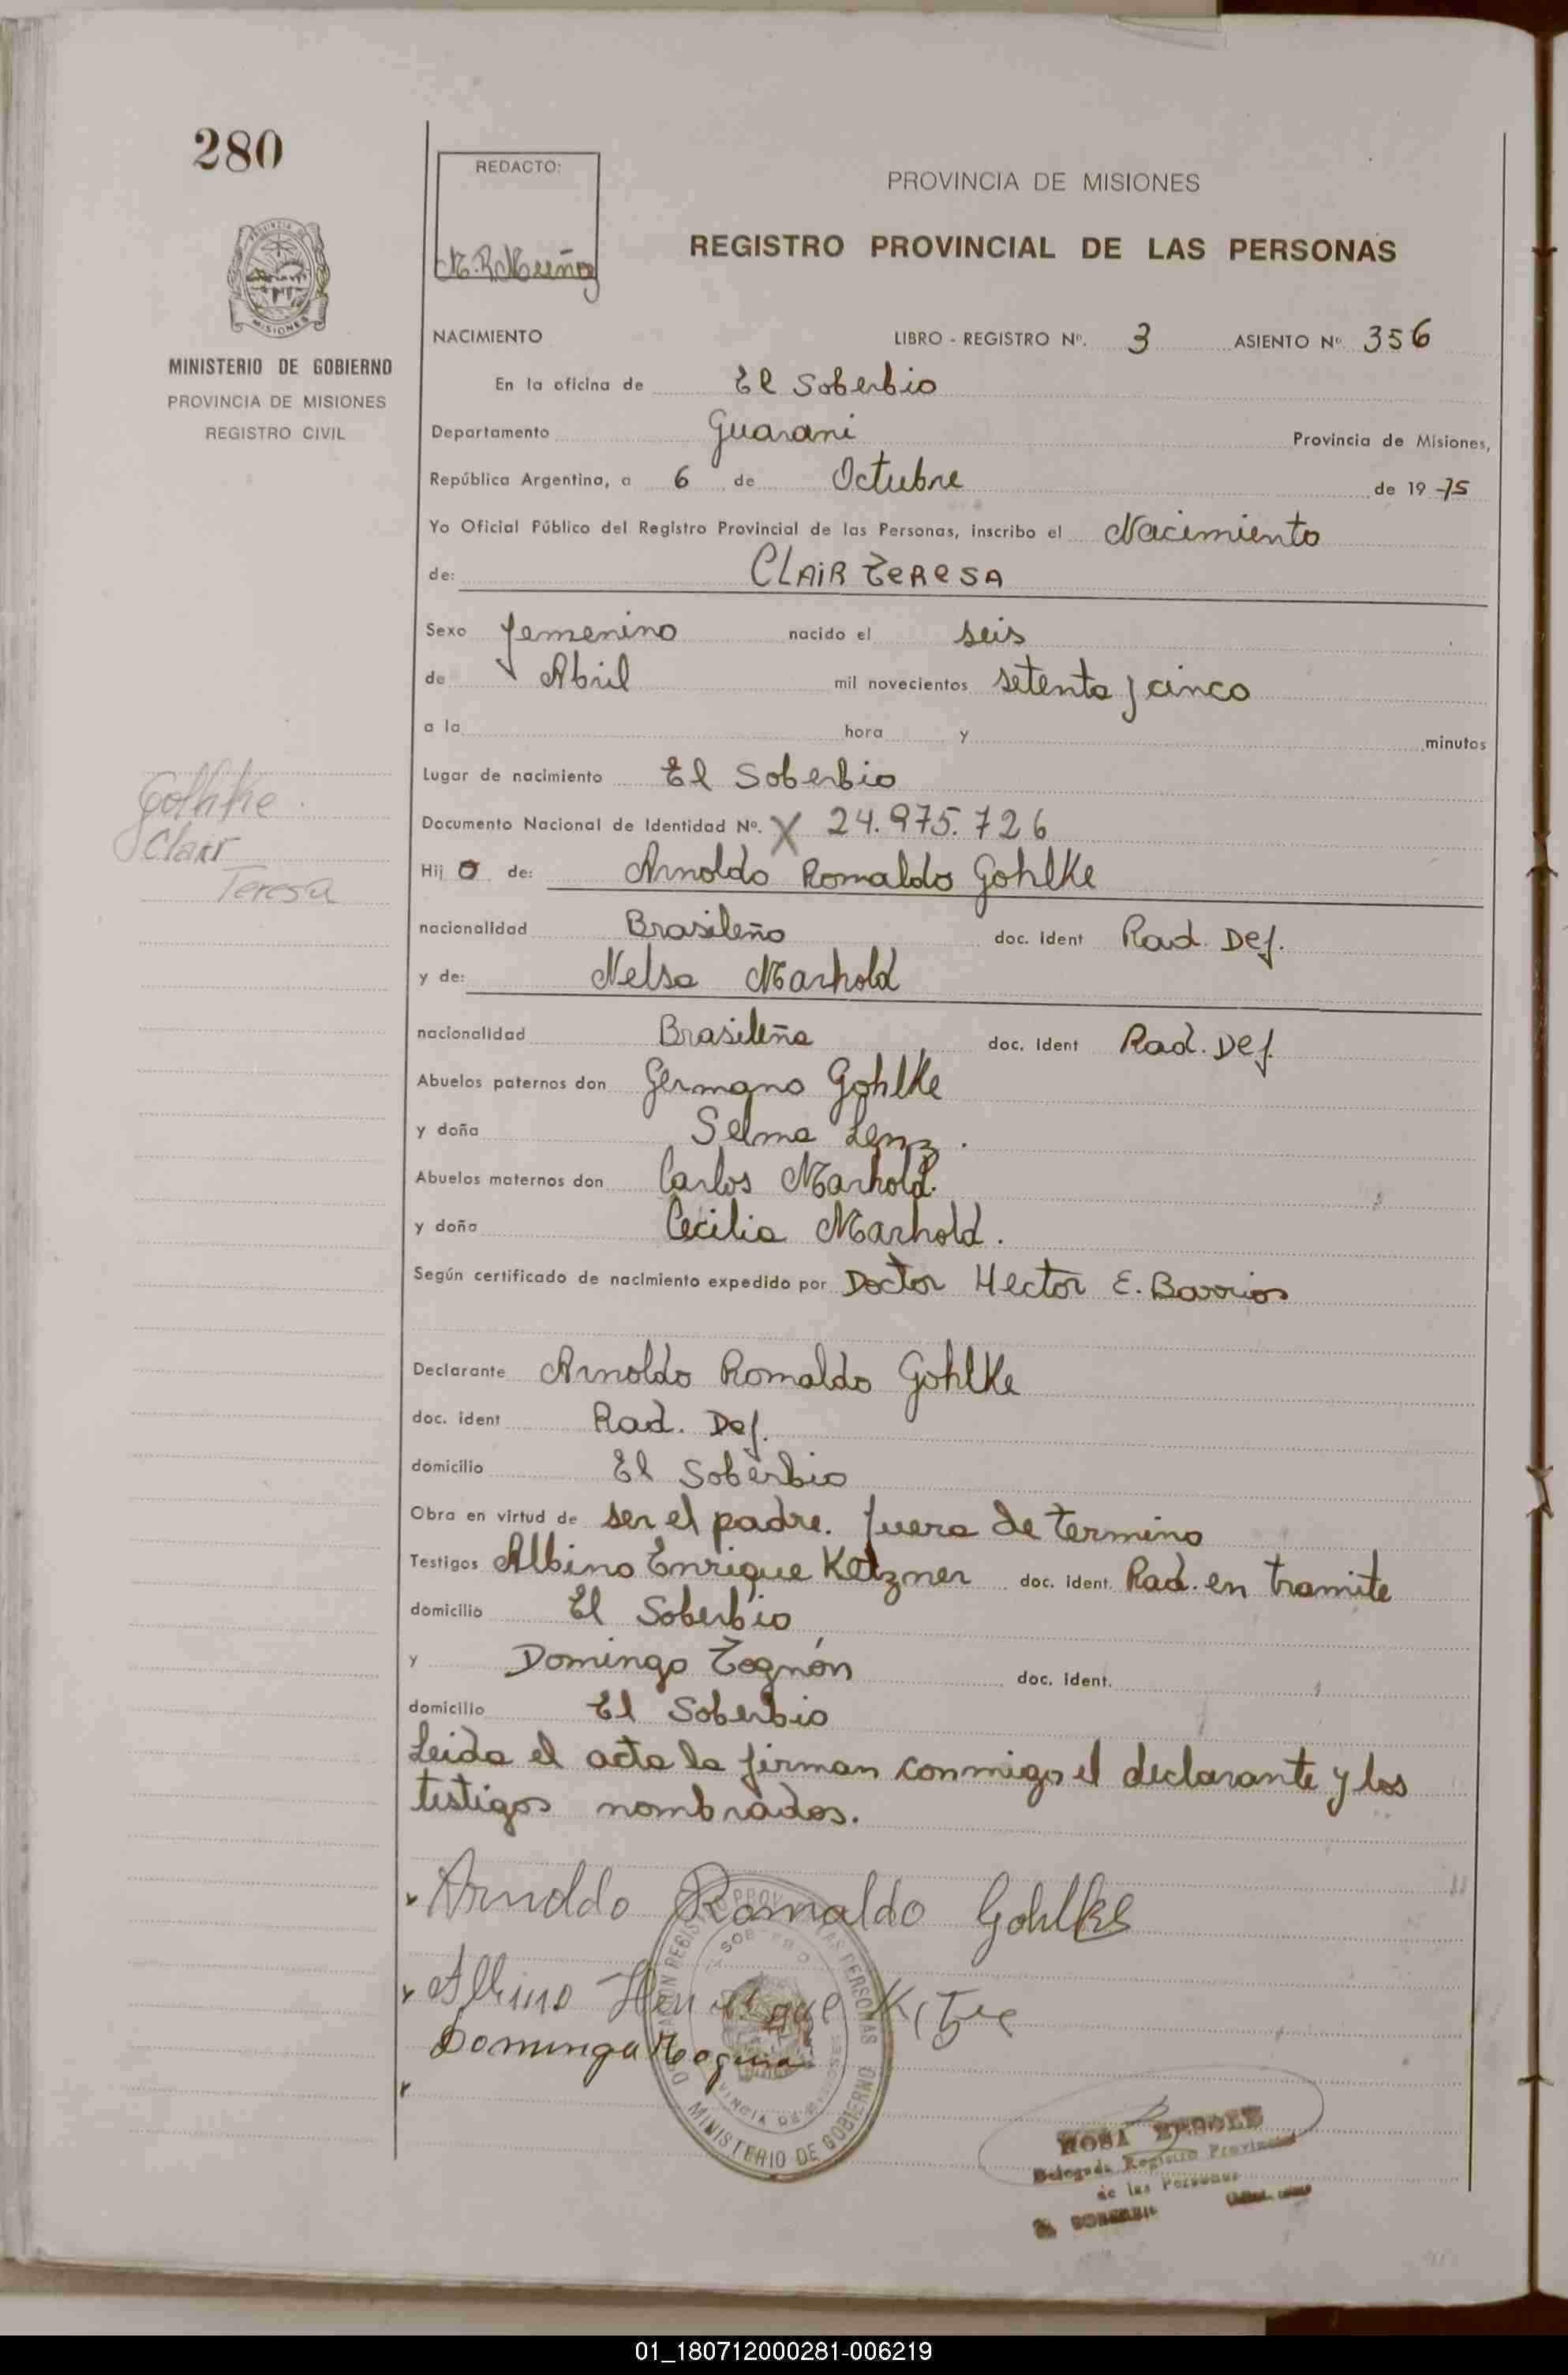 280
REDACTO:
PROVINCIA DE MISIONES
REGISTRO PROVINCIAL DE LAS PERSONAS
MISIONES
MINISTERIO DE GOBIERNO
PROVINCIA DE MISIONES
REGISTRO CIVIL
NACIMIENTO LIBRO - REGISTRO Nº. 3 ASIENTO Nº 356
En la oficina de El Soberbio
Departamento Guarani Provincia de Misiones,
República Argentina, a 6 de Octubre de 19 75
Yo Oficial Público del Registro Provincial de las Personas, inscribo el Nacimiento
de: CLAIR TERESA
Sexo femenino nacido el seis
de Abril mil novecientos setenta y cinco
a la hora y minutos
Lugar de nacimiento El Soberbio
Golhke
Clair
Teresa
Documento Nacional de Identidad Nº. X 24.975.726
Hij o de: Arnoldo Romaldo Gohlke
nacionalidad Brasileño doc. ident Rad. Def.
y de: Nelsa Marhold
nacionalidad Brasileña doc. ident Rad. Def.
Abuelos paternos don Germano Gohlke
y doña Selma Lenz.
Abuelos maternos don Carlos Marhold.
y doña Cecilia Marhold.
Según certificado de nacimiento expedido por Doctor Hector E. Barrios
Declarante Arnoldo Romaldo Gohlke
doc. ident Rad. Def.
domicilio El Soberbio
Obra en virtud de ser el padre. fuera de termino
Testigos Albino Enrique Ketzner doc. ident. Rad. en tramite
domicilio El Soberbio
y Domingo Tognón doc. ident.
domicilio El Soberbio
Leida el acta la firman conmigo el declarante y los
testigos nombrados.
Arnoldo Romaldo Gohlke
Albino
Domingo
MINISTERIO DE GOBIERNO
ROSA
Delegada Registro Provincial
de las Personas
EL SOBERBIO
01_180712000281-006219